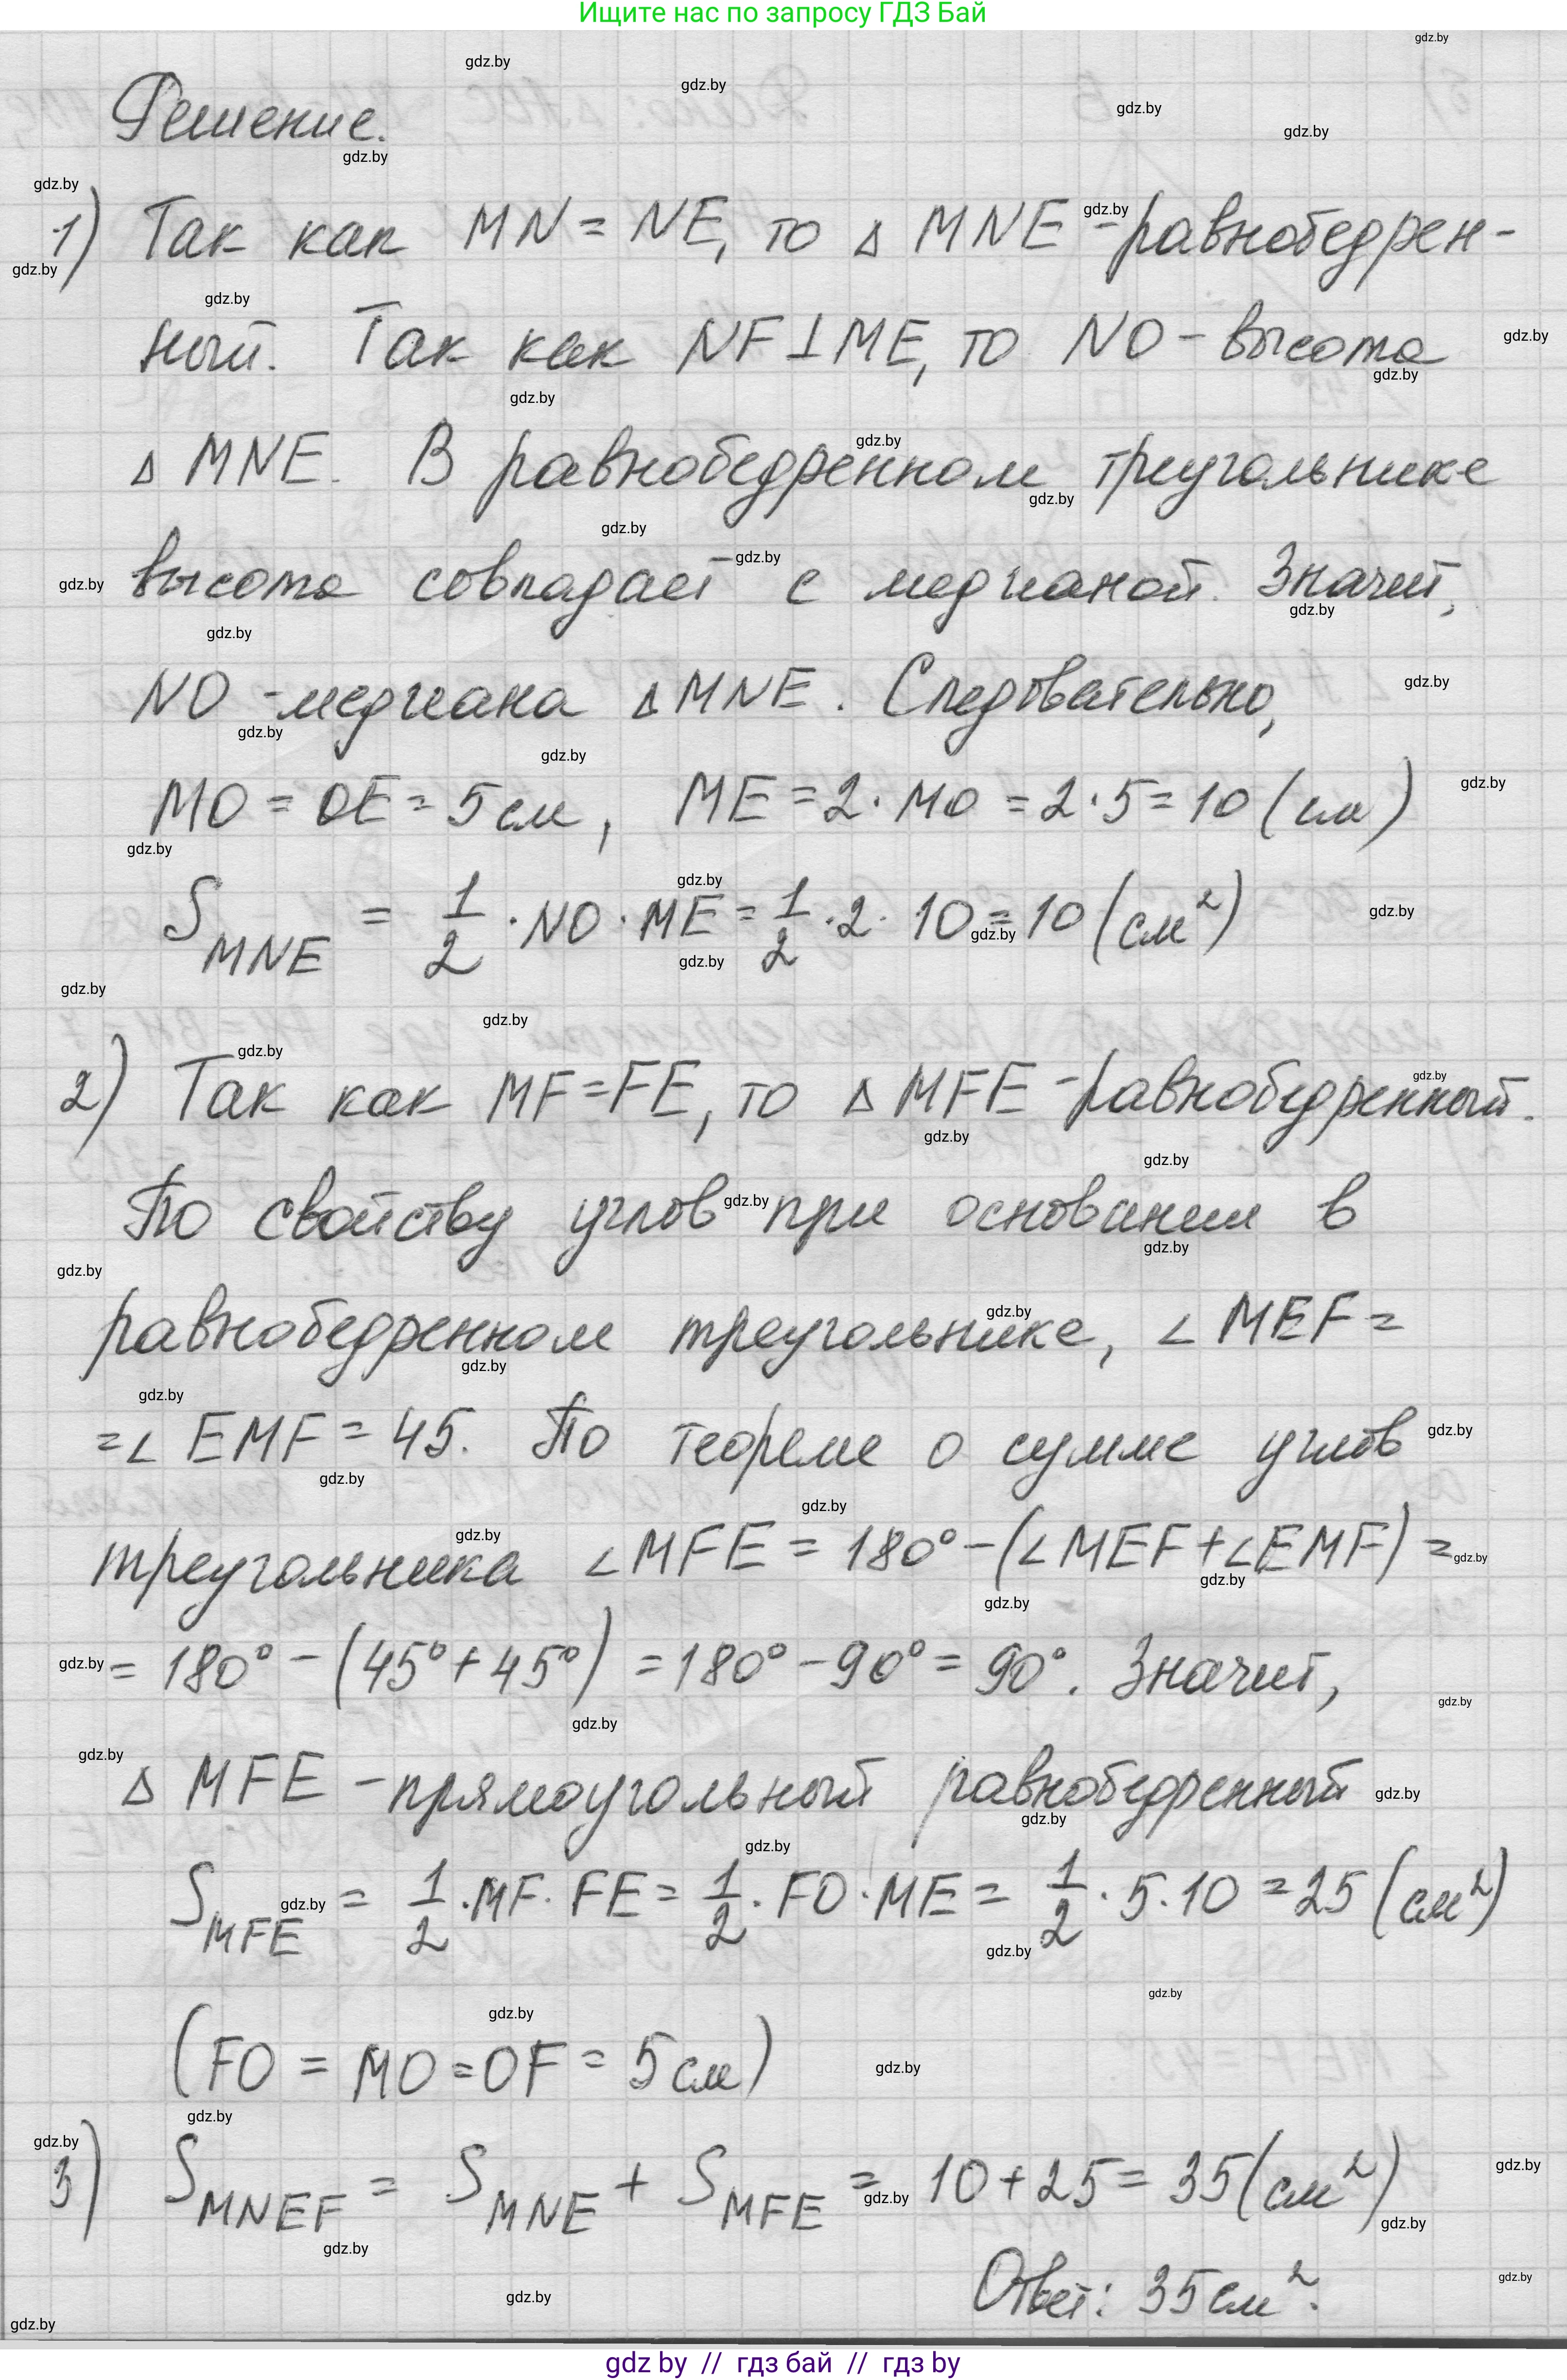 Ищите нас по запросу ГДЗ Бай
Решение.
1) Так как MN = NE, то △ MNE - равнобедрен-
ный. Так как NF⊥ME, то NO - высота
△ MNE. В равнобедренном треугольнике
высота совпадает с медианой. Значит,
NO - медиана △ MNE. Следовательно,
MO = OE = 5 см, ME = 2 · MO = 2 · 5 = 10 (см)
S_MNE = 1/2 · NO · ME = 1/2 · 2 · 10 = 10 (см²)
2) Так как MF = FE, то △ MFE - равнобедренный.
По свойству углов при основании в
равнобедренном треугольнике, ∠ MEF =
= ∠ EMF = 45. По теореме о сумме углов
треугольника ∠ MFE = 180° - (∠MEF + ∠EMF) =
= 180° - (45° + 45°) = 180° - 90° = 90°. Значит,
△ MFE - прямоугольный равнобедренный
S_MFE = 1/2 · MF · FE = 1/2 · FO · ME = 1/2 · 5 · 10 = 25 (см²)
(FO = MO = OF = 5 см)
3) S_MNEF = S_MNE + S_MFE = 10 + 25 = 35 (см²)
Ответ: 35 см².
gdz by // гдз бай // гдз by